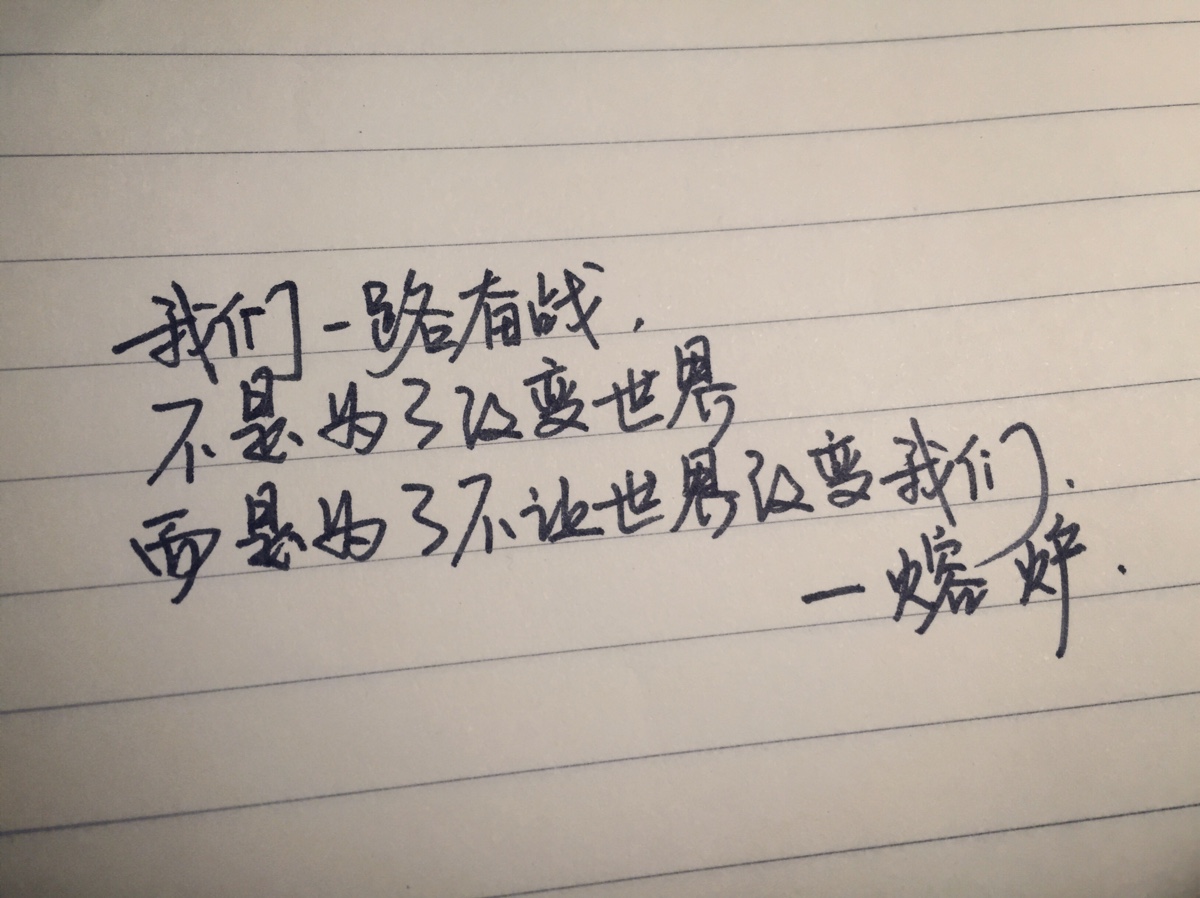 我们一路奋战.
不是为了改变世界
而是为了不让世界改变我们.
一熔炉.